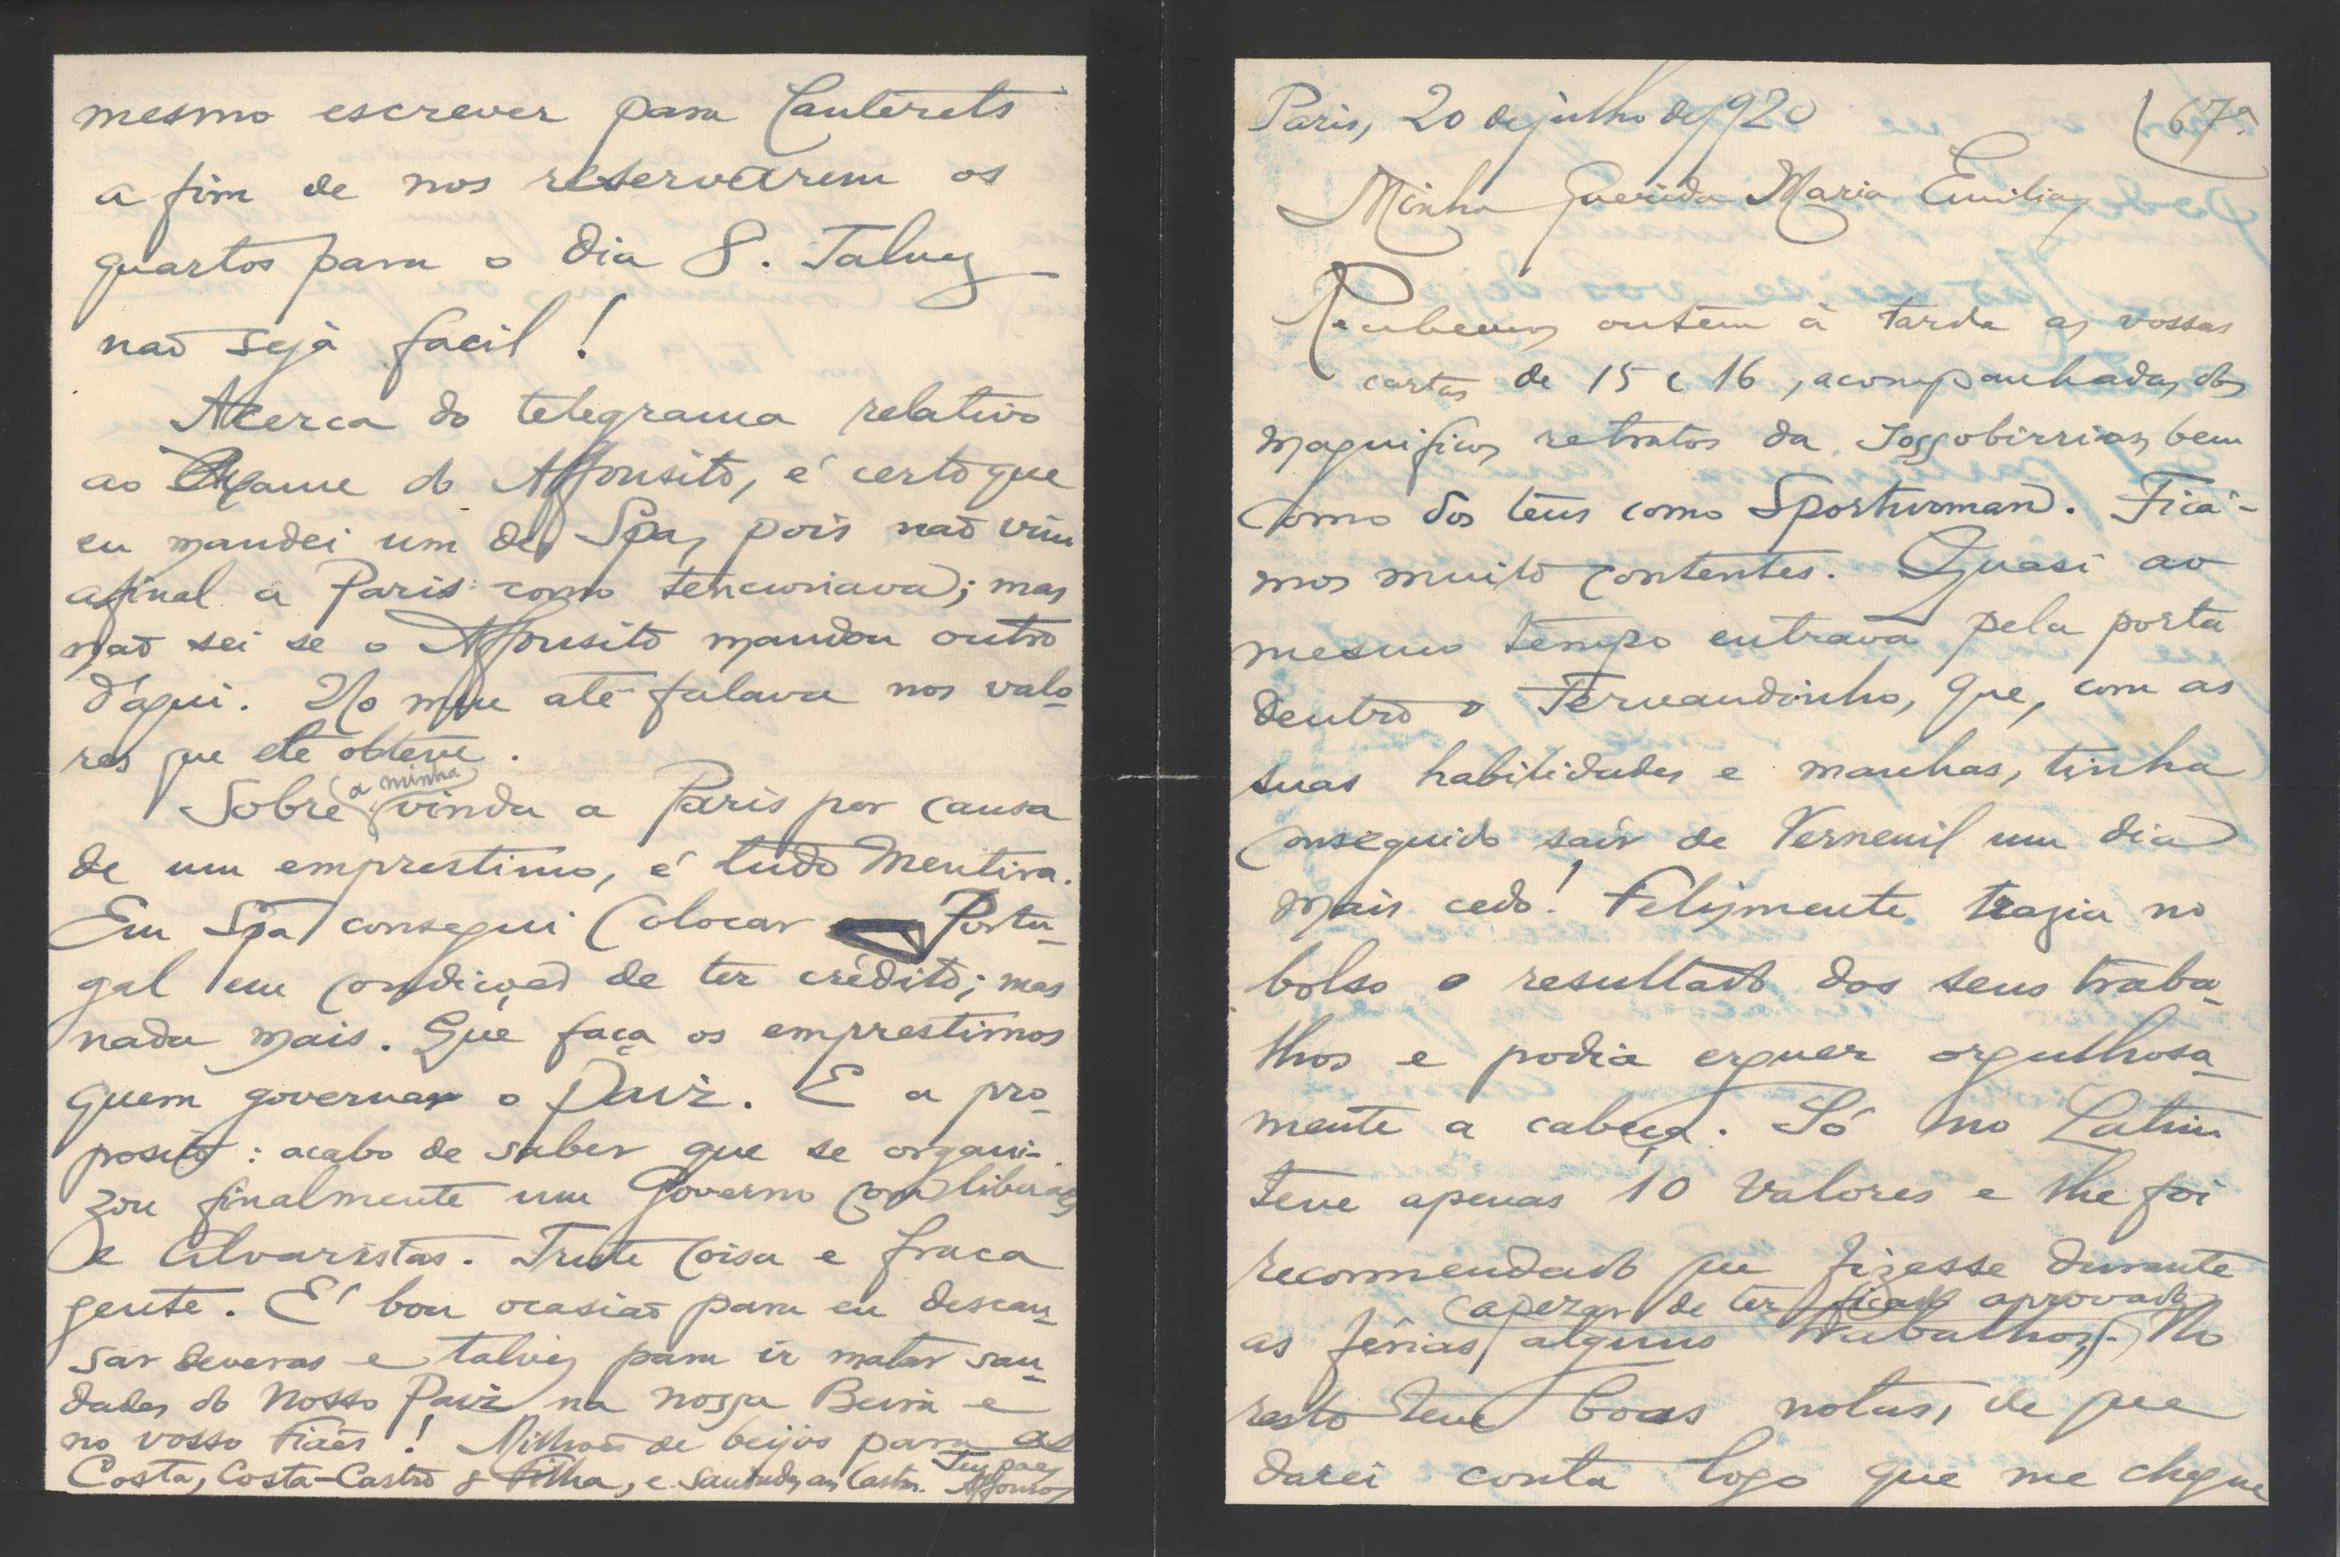 Paris, 20 de julho de 1920
67ª
Minha Querida Maria Emilia,
Recebemos ontem á tarde as vossas
cartas de 15 e 16, acompanhadas dos
magnificos retratos da bem
como dos teus como Sportwoman. Ficá-
mos muito contentes. Quasi ao
mesmo tempo entrava pela porta
dentro o Fernandinho, que, com as
suas habilidades e manhas, tinha
conseguido sair de Verneuil um dia
mais cedo! Felizmente trazia no
bolso o resultado dos seus traba-
lhos e podia erguer orgulhosa-
mente a cabeça. Só no Latim
teve apenas 10 valores e lhe foi
recomendado que fizesse durante
(apezar de ter ficado aprovado)
as férias alguns trabalhos. No
resto teve boas notas, de que
darei conta logo que me chegue
mesmo escrever para Cauterets
a fim de nos reservarem os
quartos para o dia 8. Talvez
não seja facil!
Acerca do telegrama relativo
ao Exame do Affonsito, é certo que
eu mandei um de Spa, pois não vim
afinal a Paris como tencionava; mas
não sei se o Affonsito mandou outro
d'aqui. No meu até falava nos valo-
res que ele obteve.
Sobre a minha vinda a Paris por causa
de um emprestimo, é tudo mentira.
Em Spa consegui colocar Portu-
gal em condições de ter crédito; mas
nada mais. Que faça os emprestimos
quem governar o Paiz. E a pro-
posito: acabo de saber que se organi-
zou finalmente um Governo com liberaes
e Alvaristas. Triste coisa e fraca
gente. É boa ocasião para eu descan-
sar deveras e talvez para ir matar sau-
dades do Nosso Paiz na nossa Beira e
no vosso Fiães! Milhões de beijos para as
Costa, Costa-Castro & Filha, e saudades aos Castro. Teu pae,
Affonso